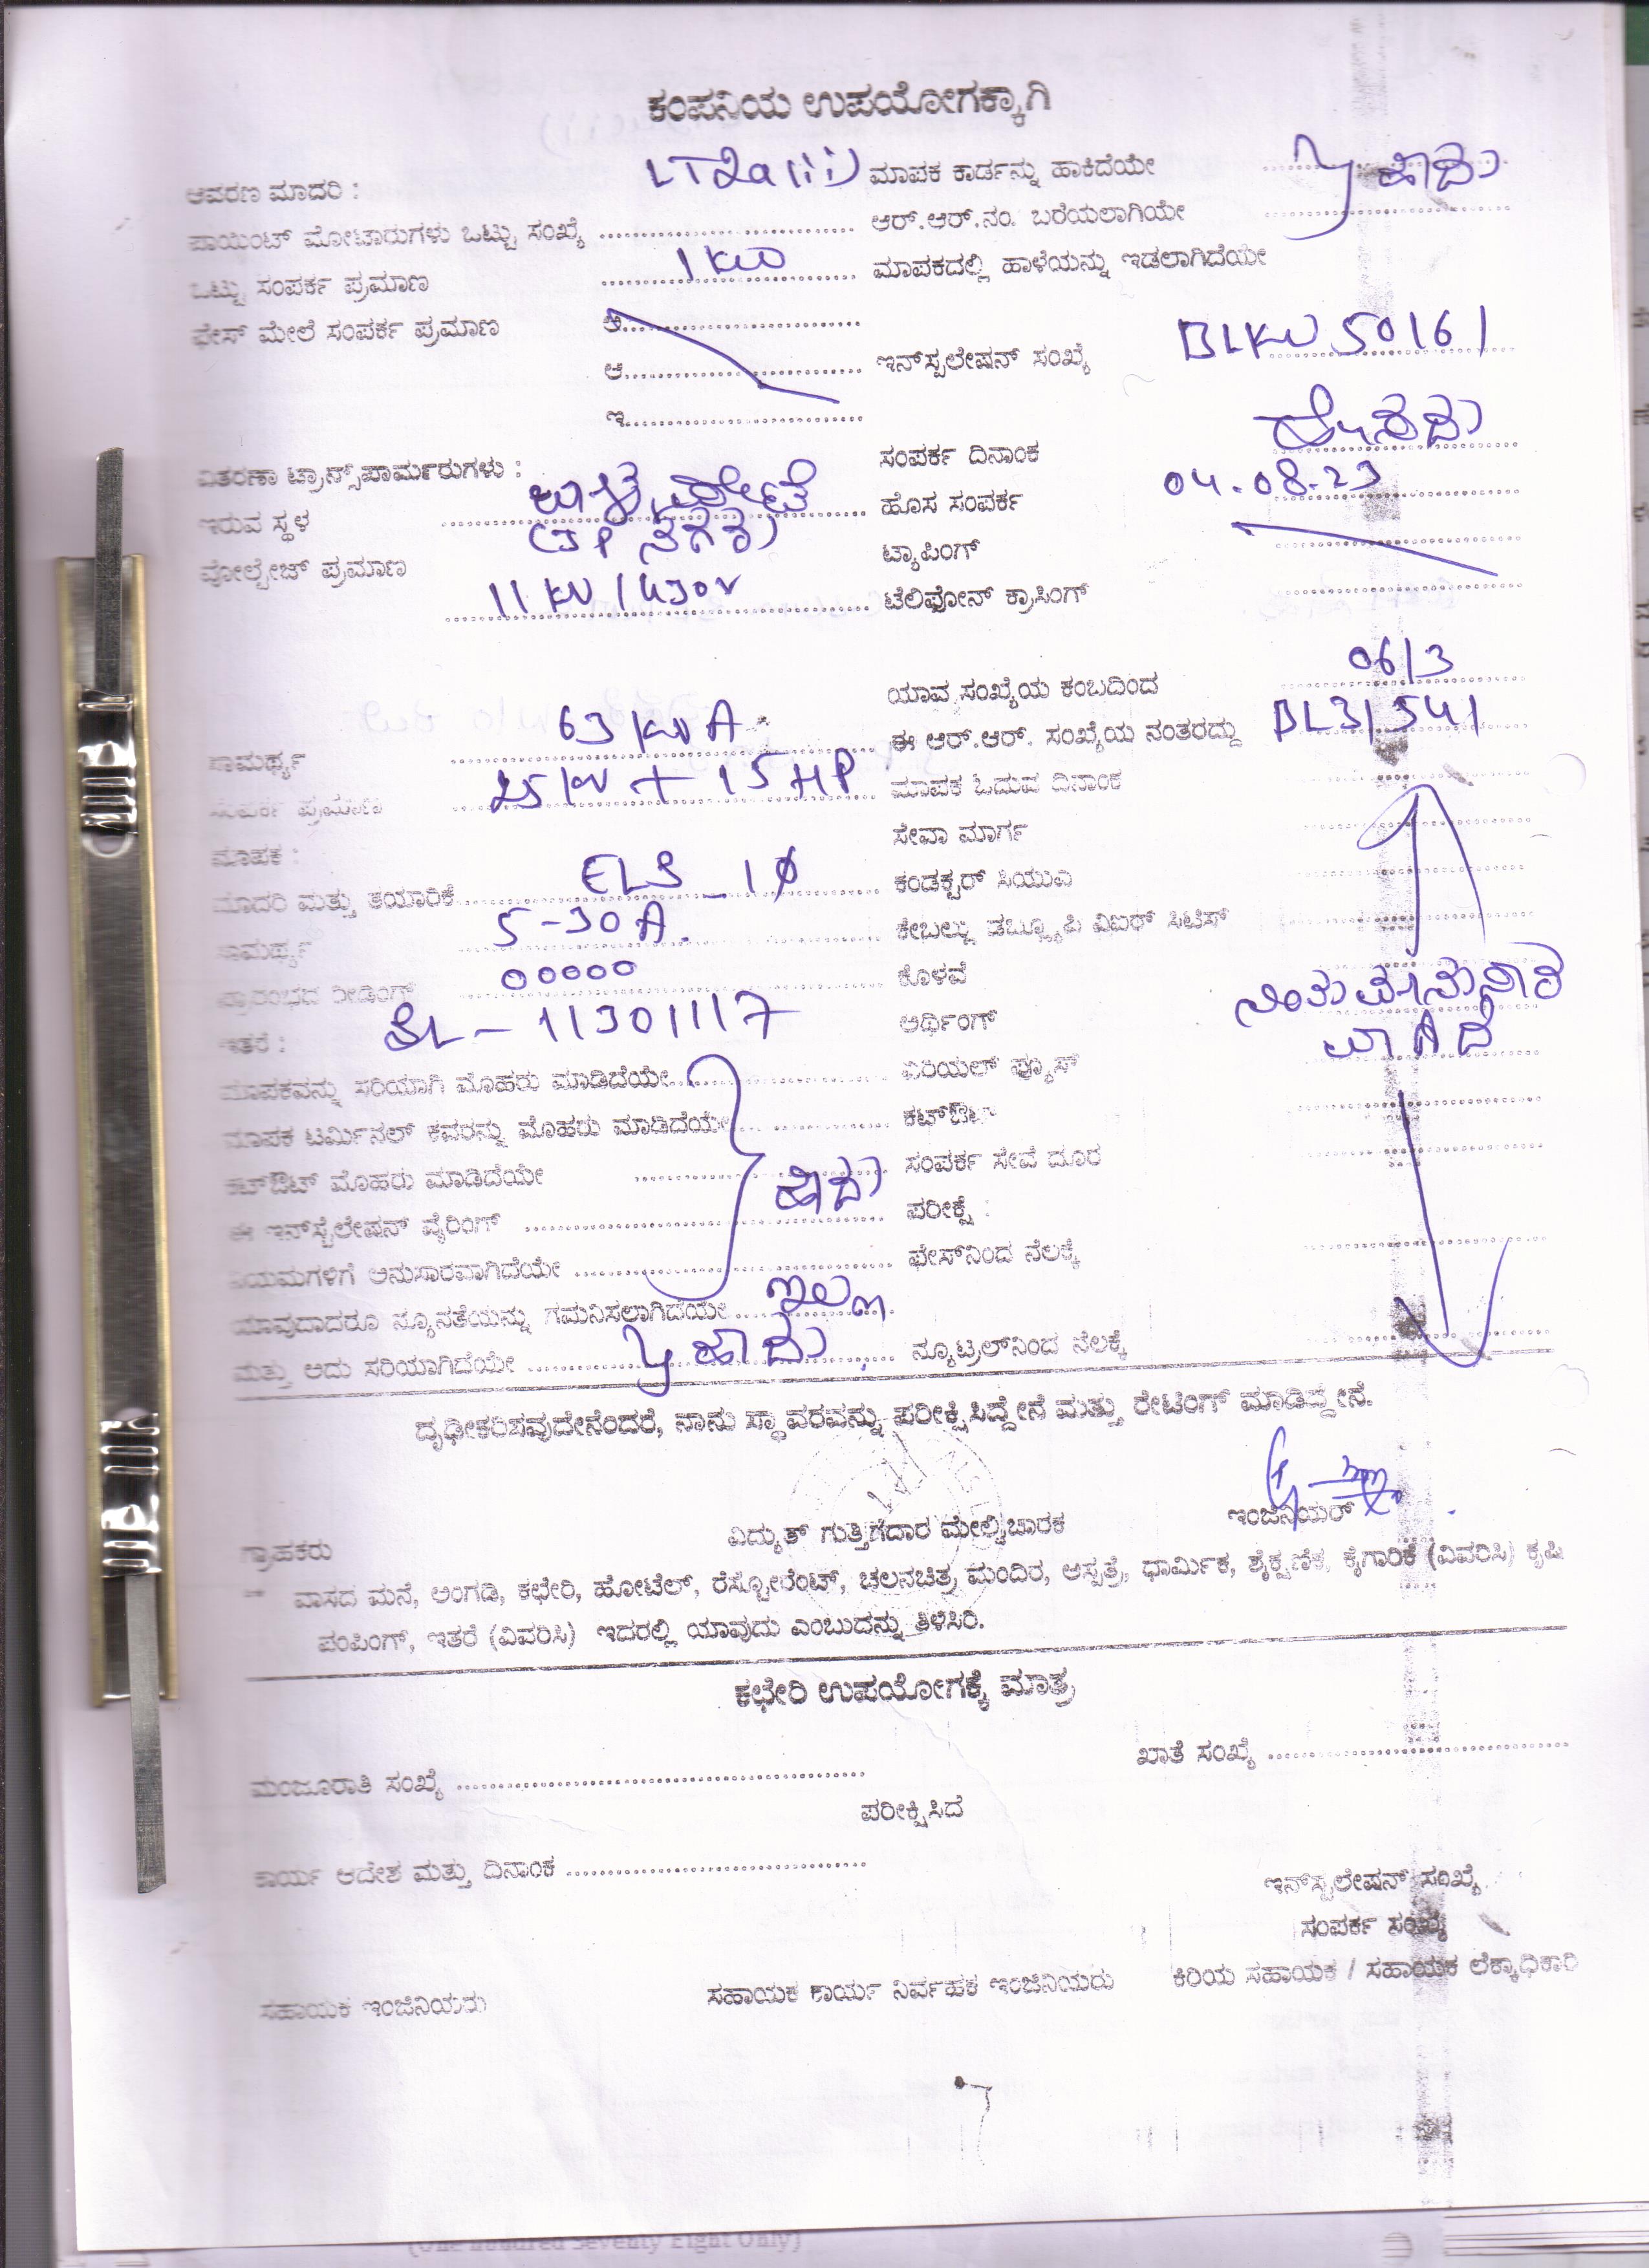 ಕಂಪನಿಯ ಉಪಯೋಗಕ್ಕಾಗಿ
ಆವರಣ ಮಾದರಿ : LT2a(ii) ಮಾಪಕ ಕಾರ್ಡನ್ನು ಹಾಕಿದೆಯೇ ಹೌದು
ಪಾಯಿಂಟ್ ಮೋಟಾರುಗಳು ಒಟ್ಟು ಸಂಖ್ಯೆ ಆರ್.ಆರ್.ನಂ. ಬರೆಯಲಾಗಿಯೇ
ಒಟ್ಟು ಸಂಪರ್ಕ ಪ್ರಮಾಣ 1 KW ಮಾಪಕದಲ್ಲಿ ಹಾಳೆಯನ್ನು ಇಡಲಾಗಿದೆಯೇ
ಫೇಸ್ ಮೇಲೆ ಸಂಪರ್ಕ ಪ್ರಮಾಣ ಅ
ಆ ಇನ್‌ಸ್ಪಲೇಷನ್ ಸಂಖ್ಯೆ BLKW50161
ಇ
ವಿತರಣಾ ಟ್ರಾನ್ಸ್‌ಫಾರ್ಮರುಗಳು : ಸಂಪರ್ಕ ದಿನಾಂಕ
ಇರುವ ಸ್ಥಳ (JP ನಗರ) ಹೊಸ ಸಂಪರ್ಕ 04.08.23
ವೋಲ್ಟೇಜ್ ಪ್ರಮಾಣ ಟ್ಯಾಪಿಂಗ್
11 KV / 430V ಟೆಲಿಫೋನ್ ಕ್ರಾಸಿಂಗ್
ಯಾವ ಸಂಖ್ಯೆಯ ಕಂಬದಿಂದ 06/3
ಸಾಮರ್ಥ್ಯ 63 KVA ಈ ಆರ್.ಆರ್. ಸಂಖ್ಯೆಯ ನಂತರದ್ದು BL31541
ಸಂಪರ್ಕ ಪ್ರಮಾಣ 25 KW + 15 HP ಮಾಪಕ ಓದುವ ದಿನಾಂಕ
ಮಾಪಕ : ಸೇವಾ ಮಾರ್ಗ
ಮಾದರಿ ಮತ್ತು ತಯಾರಿಕೆ ELS - 1Ø ಕಂಡಕ್ಟರ್ ಸಿಯುಎ
ಸಾಮರ್ಥ್ಯ 5-30A. ಕೇಬಲ್ಲು ಡಬ್ಲ್ಯೂಪಿ ವಿಐಆರ್ ಸಿಟಿಸ್
ಪ್ರಾರಂಭದ ರೀಡಿಂಗ್ 00000 ಕೊಳವೆ
ಇತರೆ : SL - 11301117 ಅರ್ಥಿಂಗ್
ಮಾಪಕವನ್ನು ಸರಿಯಾಗಿ ಮೊಹರು ಮಾಡಿದೆಯೇ ಏರಿಯಲ್ ಫ್ಯೂಸ್
ಮಾಪಕ ಟರ್ಮಿನಲ್ ಕವರನ್ನು ಮೊಹರು ಮಾಡಿದೆಯೇ ಕಟ್‌ಔಟ್
ಕಟ್‌ಔಟ್ ಮೊಹರು ಮಾಡಿದೆಯೇ ಹೌದು ಸಂಪರ್ಕ ಸೇವೆ ದೂರ
ಈ ಇನ್‌ಸ್ಟಲೇಷನ್ ವೈರಿಂಗ್ ಪರೀಕ್ಷೆ :
ನಿಯಮಗಳಿಗೆ ಅನುಸಾರವಾಗಿದೆಯೇ ಫೇಸ್‌ನಿಂದ ನೆಲಕ್ಕೆ
ಯಾವುದಾದರೂ ನ್ಯೂನತೆಯನ್ನು ಗಮನಿಸಲಾಗಿದೆಯೇ ಇಲ್ಲ
ಮತ್ತು ಅದು ಸರಿಯಾಗಿದೆಯೇ ಹೌದು ನ್ಯೂಟ್ರಲ್‌ನಿಂದ ನೆಲಕ್ಕೆ
ದೃಢೀಕರಿಸುವುದೇನೆಂದರೆ, ನಾನು ಸ್ಥಾವರವನ್ನು ಪರೀಕ್ಷಿಸಿದ್ದೇನೆ ಮತ್ತು ರೇಟಿಂಗ್ ಮಾಡಿದ್ದೇನೆ.
ಗ್ರಾಹಕರು ವಿದ್ಯುತ್ ಗುತ್ತಿಗೆದಾರ ಮೇಲ್ವಿಚಾರಕ ಇಂಜಿನಿಯರ್
** ವಾಸದ ಮನೆ, ಅಂಗಡಿ, ಕಛೇರಿ, ಹೋಟೆಲ್, ರೆಸ್ಟೋರೆಂಟ್, ಚಲನಚಿತ್ರ ಮಂದಿರ, ಆಸ್ಪತ್ರೆ, ಧಾರ್ಮಿಕ, ಶೈಕ್ಷಣಿಕ, ಕೈಗಾರಿಕೆ (ವಿವರಿಸಿ) ಕೃಷಿ
ಪಂಪಿಂಗ್, ಇತರೆ (ವಿವರಿಸಿ) ಇದರಲ್ಲಿ ಯಾವುದು ಎಂಬುದನ್ನು ತಿಳಿಸಿರಿ.
ಕಛೇರಿ ಉಪಯೋಗಕ್ಕೆ ಮಾತ್ರ
ಮಂಜೂರಾತಿ ಸಂಖ್ಯೆ ಖಾತೆ ಸಂಖ್ಯೆ
ಪರೀಕ್ಷಿಸಿದೆ
ಕಾರ್ಯ ಆದೇಶ ಮತ್ತು ದಿನಾಂಕ
ಇನ್‌ಸ್ಟಲೇಷನ್ ಸಂಖ್ಯೆ
ಸಂಪರ್ಕ ಸಂಖ್ಯೆ
ಸಹಾಯಕ ಇಂಜಿನಿಯರು ಸಹಾಯಕ ಕಾರ್ಯ ನಿರ್ವಹಕ ಇಂಜಿನಿಯರು ಕಿರಿಯ ಸಹಾಯಕ / ಸಹಾಯಕ ಲೆಕ್ಕಾಧಿಕಾರಿ
(One Hundred Seventy Eight Only)